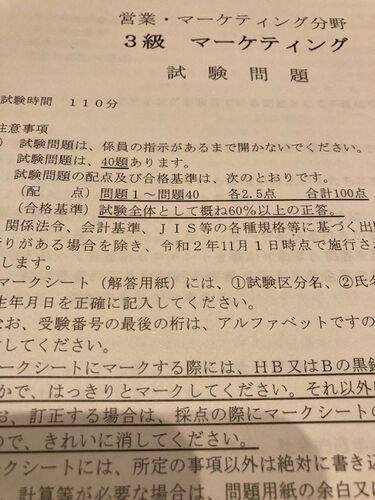 営業・マーケティング分野
３級　マーケティング
試　験　問　題
試験時間　１１０分
注意事項
）　試験問題は、係員の指示があるまで開かないでください。
試験問題は、40題あります。
試験問題の配点及び合格基準は、次のとおりです。
（配　　点）問題１～問題40　　各2.5点　　合計100点
（合格基準）試験全体として概ね60％以上の正答。
関係法令、会計基準、ＪＩＳ等の各種規格等に基づく出
りがある場合を除き、令和２年11月１日時点で施行さ
します。
マークシート（解答用紙）には、①試験区分名、②氏
生年月日を正確に記入してください。
なお、受験番号の最後の桁は、アルファベットですの
してください。
ークシートにマークする際には、ＨＢ又はＢの黒
かで、はっきりとマークしてください。それ以外
お、訂正する場合は、採点の際にマークシートの
ので、きれいに消してください。
ークシートには、所定の事項以外は絶対に書き込
計算等が必要な場合は、問題用紙の余白又は